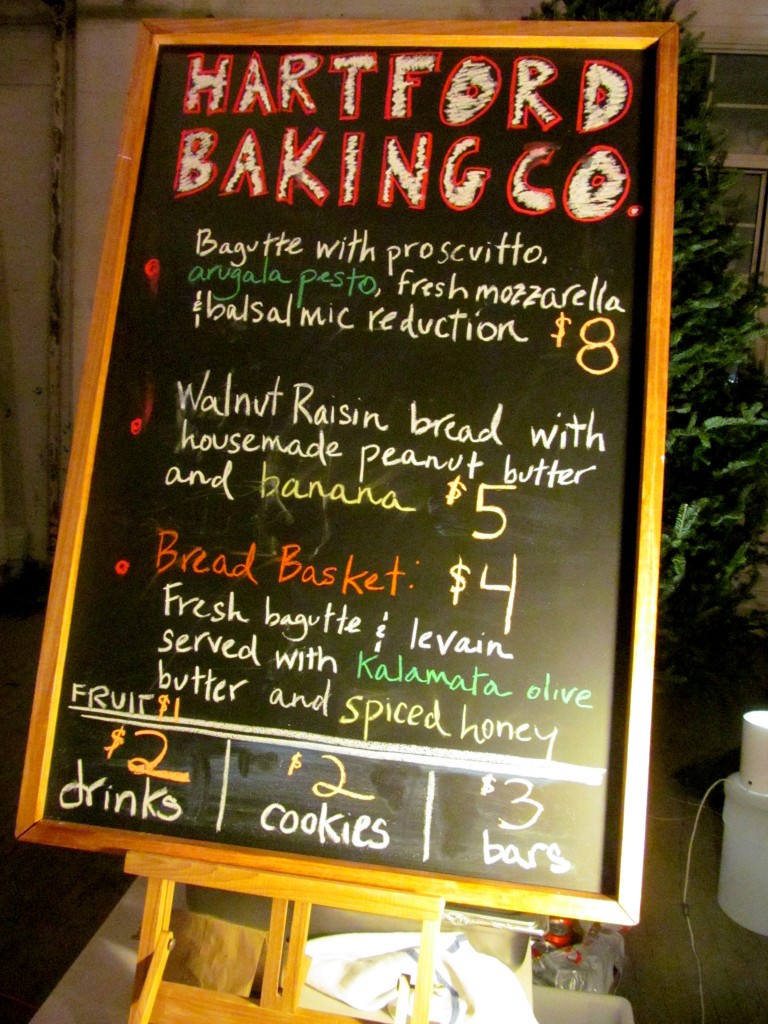 HARTFORD
BAKING CO.
Bagutte with proscuitto,
arugala pesto, fresh mozzarella
& balsalmic reduction $8
Walnut Raisin bread with
housemade peanut butter
and banana $5
Bread Basket: $4
Fresh bagutte & levain
served with Kalamata olive
butter and spiced honey
FRUIT $1
$2 $2 $3
drinks cookies bars